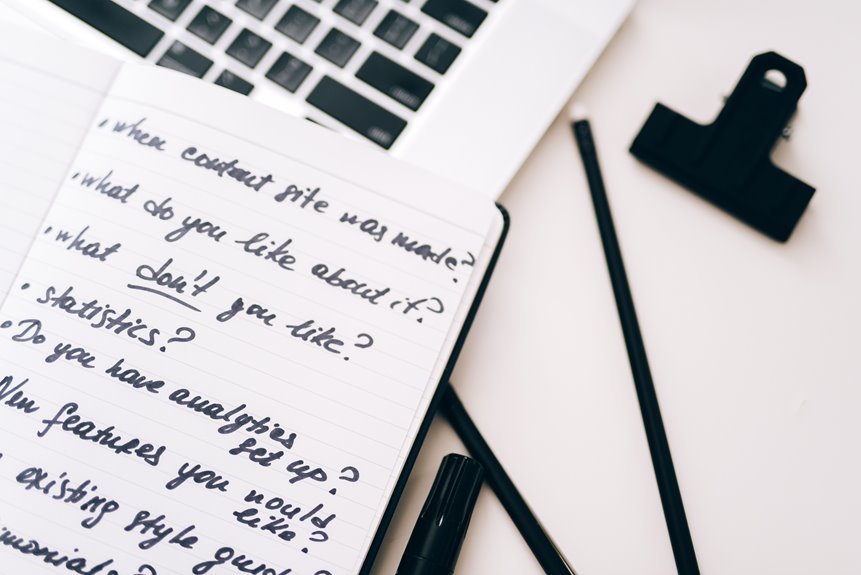 • when content site was made?
• what do you like about it?
• what don't you like?
• statistics?
• Do you have analytics
set up?
New features you would
like?
existing style guid
?